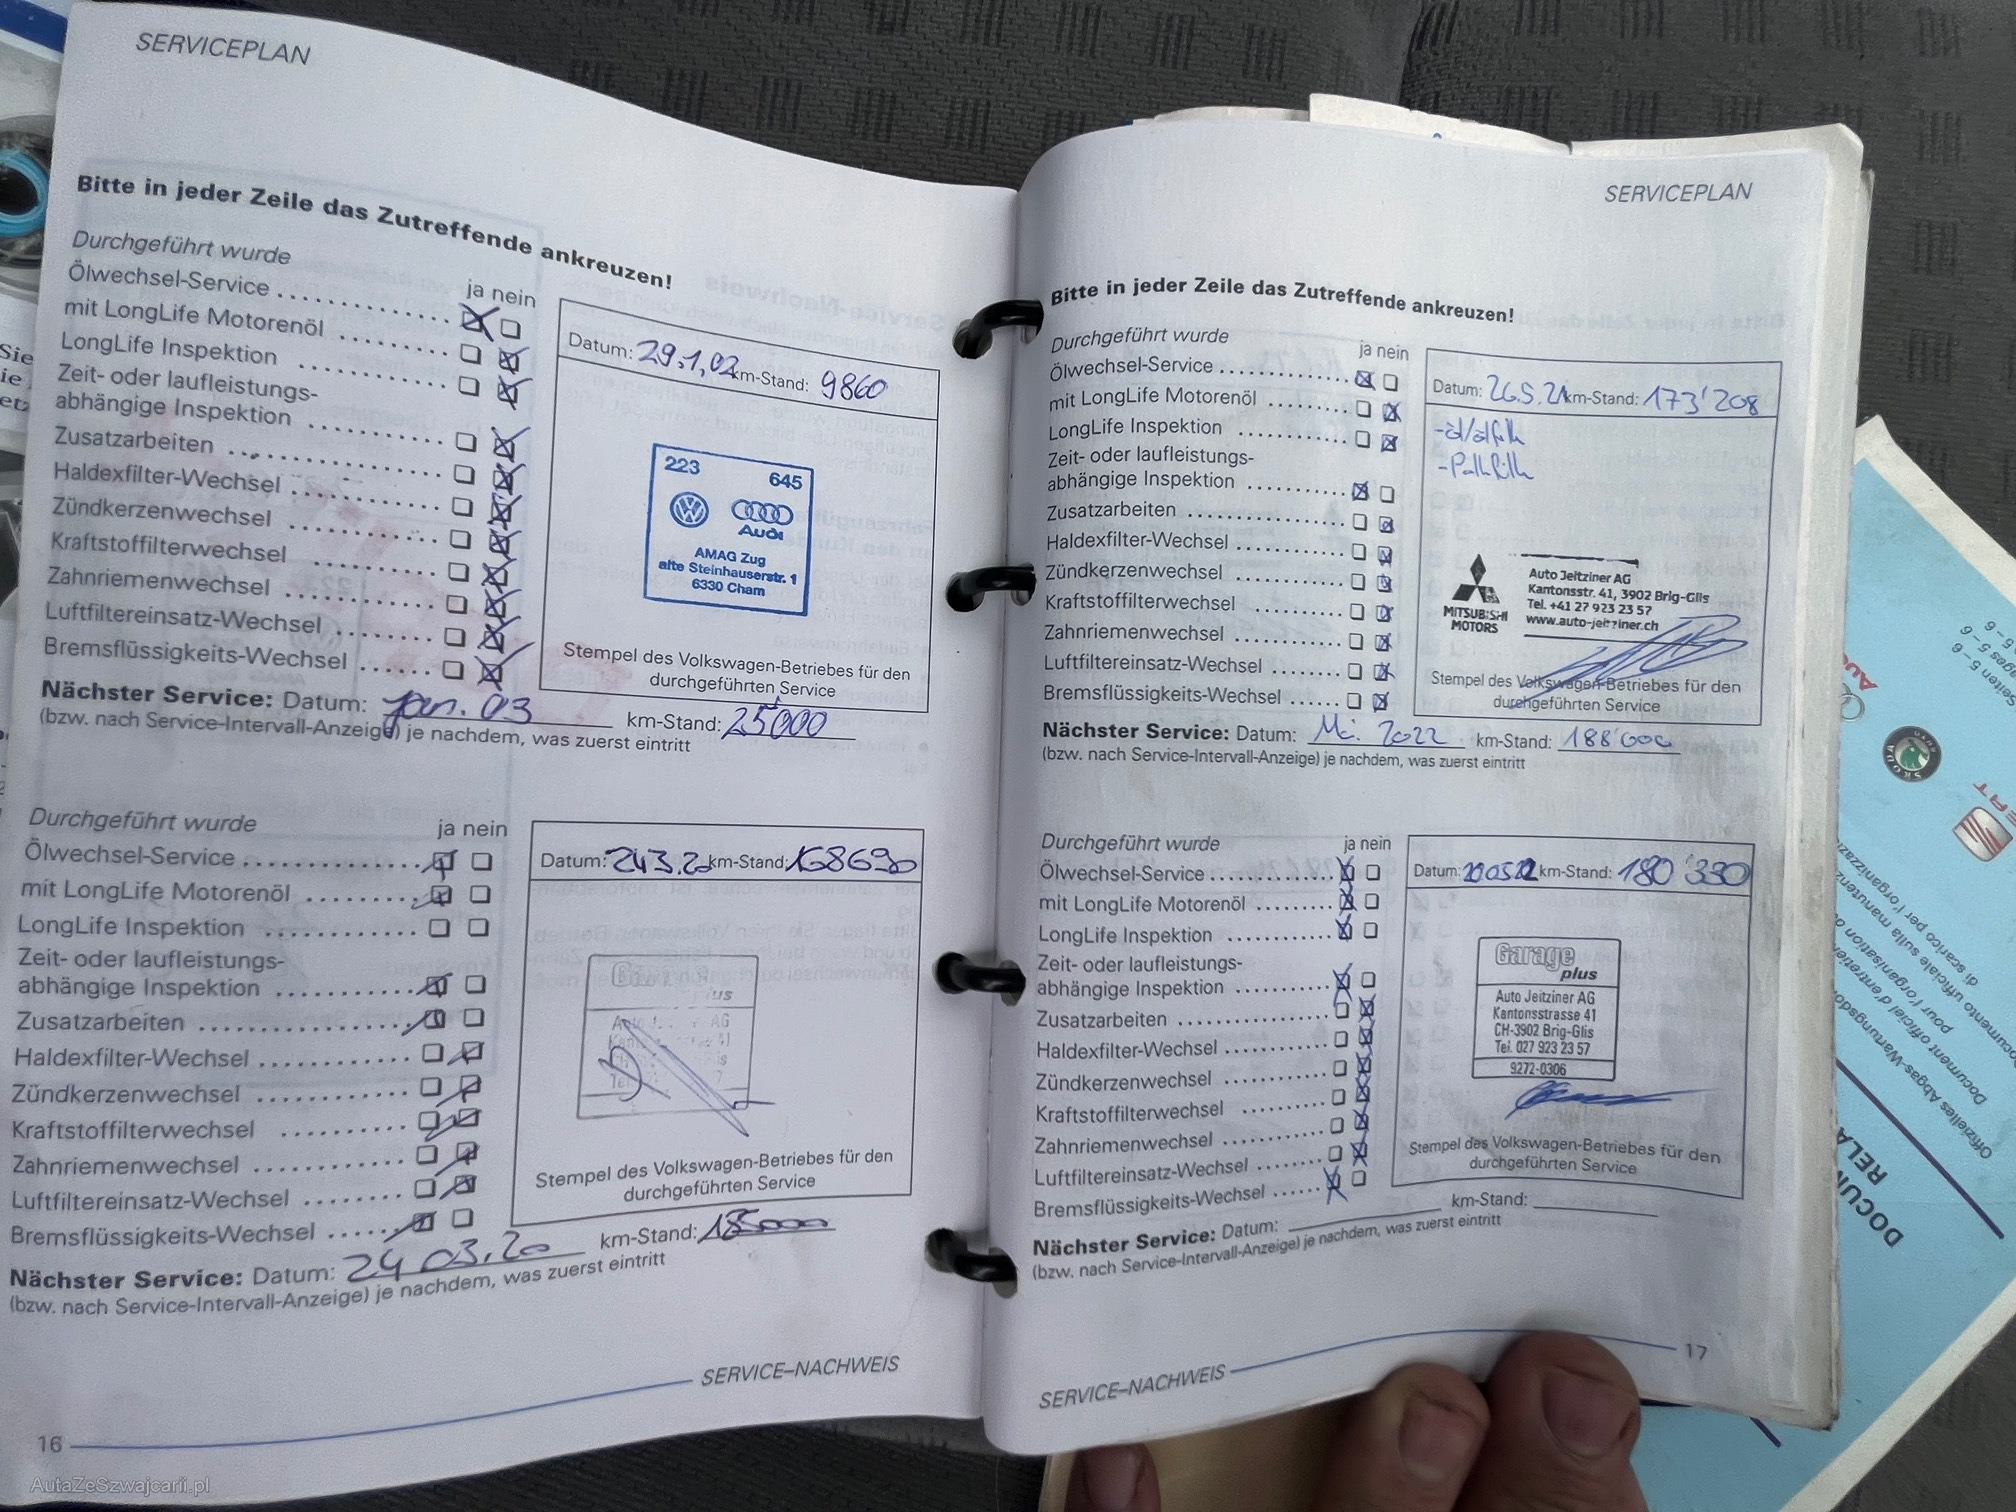 SERVICEPLAN
Bitte in jeder Zeile das Zutreffende ankreuzen!
Durchgeführt wurde
ja nein
Ölwechsel-Service
mit LongLife Motorenöl
LongLife Inspektion
Zeit- oder laufleistungs-
abhängige Inspektion
Zusatzarbeiten
Haldexfilter-Wechsel
Zündkerzenwechsel
Kraftstoffilterwechsel
Zahnriemenwechsel
Luftfiltereinsatz-Wechsel
Bremsflüssigkeits-Wechsel
Datum: 29.1.02 km-Stand: 9860
223 645
Audi
AMAG Zug
alte Steinhauserstr. 1
6330 Cham
Stempel des Volkswagen-Betriebes für den
durchgeführten Service
Nächster Service: Datum: Jan. 03 km-Stand: 25'000
(bzw. nach Service-Intervall-Anzeige) je nachdem, was zuerst eintritt
Durchgeführt wurde
ja nein
Ölwechsel-Service
mit LongLife Motorenöl
LongLife Inspektion
Zeit- oder laufleistungs-
abhängige Inspektion
Zusatzarbeiten
Haldexfilter-Wechsel
Zündkerzenwechsel
Kraftstoffilterwechsel
Zahnriemenwechsel
Luftfiltereinsatz-Wechsel
Bremsflüssigkeits-Wechsel
Datum: 24.3.20 km-Stand: 168690
Stempel des Volkswagen-Betriebes für den
durchgeführten Service
Nächster Service: Datum: 24 03.20 km-Stand: 185000
(bzw. nach Service-Intervall-Anzeige) je nachdem, was zuerst eintritt
SERVICE–NACHWEIS
16
SERVICEPLAN
Bitte in jeder Zeile das Zutreffende ankreuzen!
Durchgeführt wurde
ja nein
Ölwechsel-Service
mit LongLife Motorenöl
LongLife Inspektion
Zeit- oder laufleistungs-
abhängige Inspektion
Zusatzarbeiten
Haldexfilter-Wechsel
Zündkerzenwechsel
Kraftstoffilterwechsel
Zahnriemenwechsel
Luftfiltereinsatz-Wechsel
Bremsflüssigkeits-Wechsel
Datum: 26.5.21 km-Stand: 173'208
MITSUBISHI
MOTORS
Auto Jeitziner AG
Kantonsstr. 41, 3902 Brig-Glis
Tel. +41 27 923 23 57
www.auto-jeitziner.ch
Stempel des Volkswagen-Betriebes für den
durchgeführten Service
Nächster Service: Datum: Mai 2022 km-Stand: 188'000
(bzw. nach Service-Intervall-Anzeige) je nachdem, was zuerst eintritt
Durchgeführt wurde
ja nein
Ölwechsel-Service
mit LongLife Motorenöl
LongLife Inspektion
Zeit- oder laufleistungs-
abhängige Inspektion
Zusatzarbeiten
Haldexfilter-Wechsel
Zündkerzenwechsel
Kraftstoffilterwechsel
Zahnriemenwechsel
Luftfiltereinsatz-Wechsel
Bremsflüssigkeits-Wechsel
Datum: 20.05.22 km-Stand: 180'330
Garage
plus
Auto Jeitziner AG
Kantonsstrasse 41
CH-3902 Brig-Glis
Tel. 027 923 23 57
9272-0306
Stempel des Volkswagen-Betriebes für den
durchgeführten Service
Nächster Service: Datum: km-Stand:
(bzw. nach Service-Intervall-Anzeige) je nachdem, was zuerst eintritt
SERVICE–NACHWEIS
17
SKODA
AutaZeSzwajcarii.pl